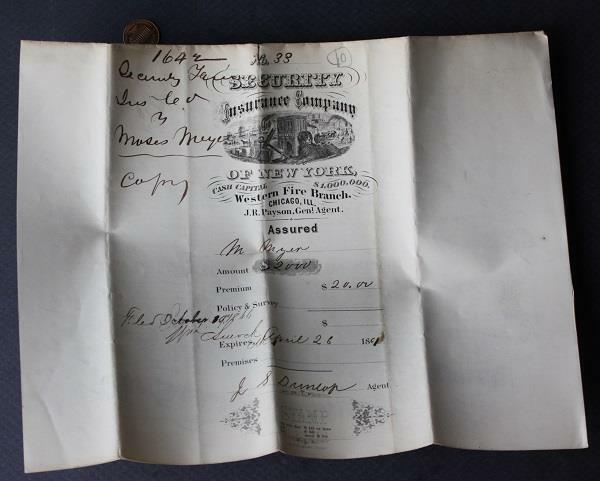 1642
Security
Ins Co
Moses Meyer
Copy
No. 33
10
SECURITY
Insurance Company
OF NEW YORK,
CASH CAPITAL $1,000,000.
Western Fire Branch.
CHICAGO, ILL.
J.R. Payson, Genl. Agent.
Assured
M Meyer
Amount $2000
Premium $20.00
Policy & Survey
$
Filed October
Expires April 26 186
Premises
J S Dunlop Agent